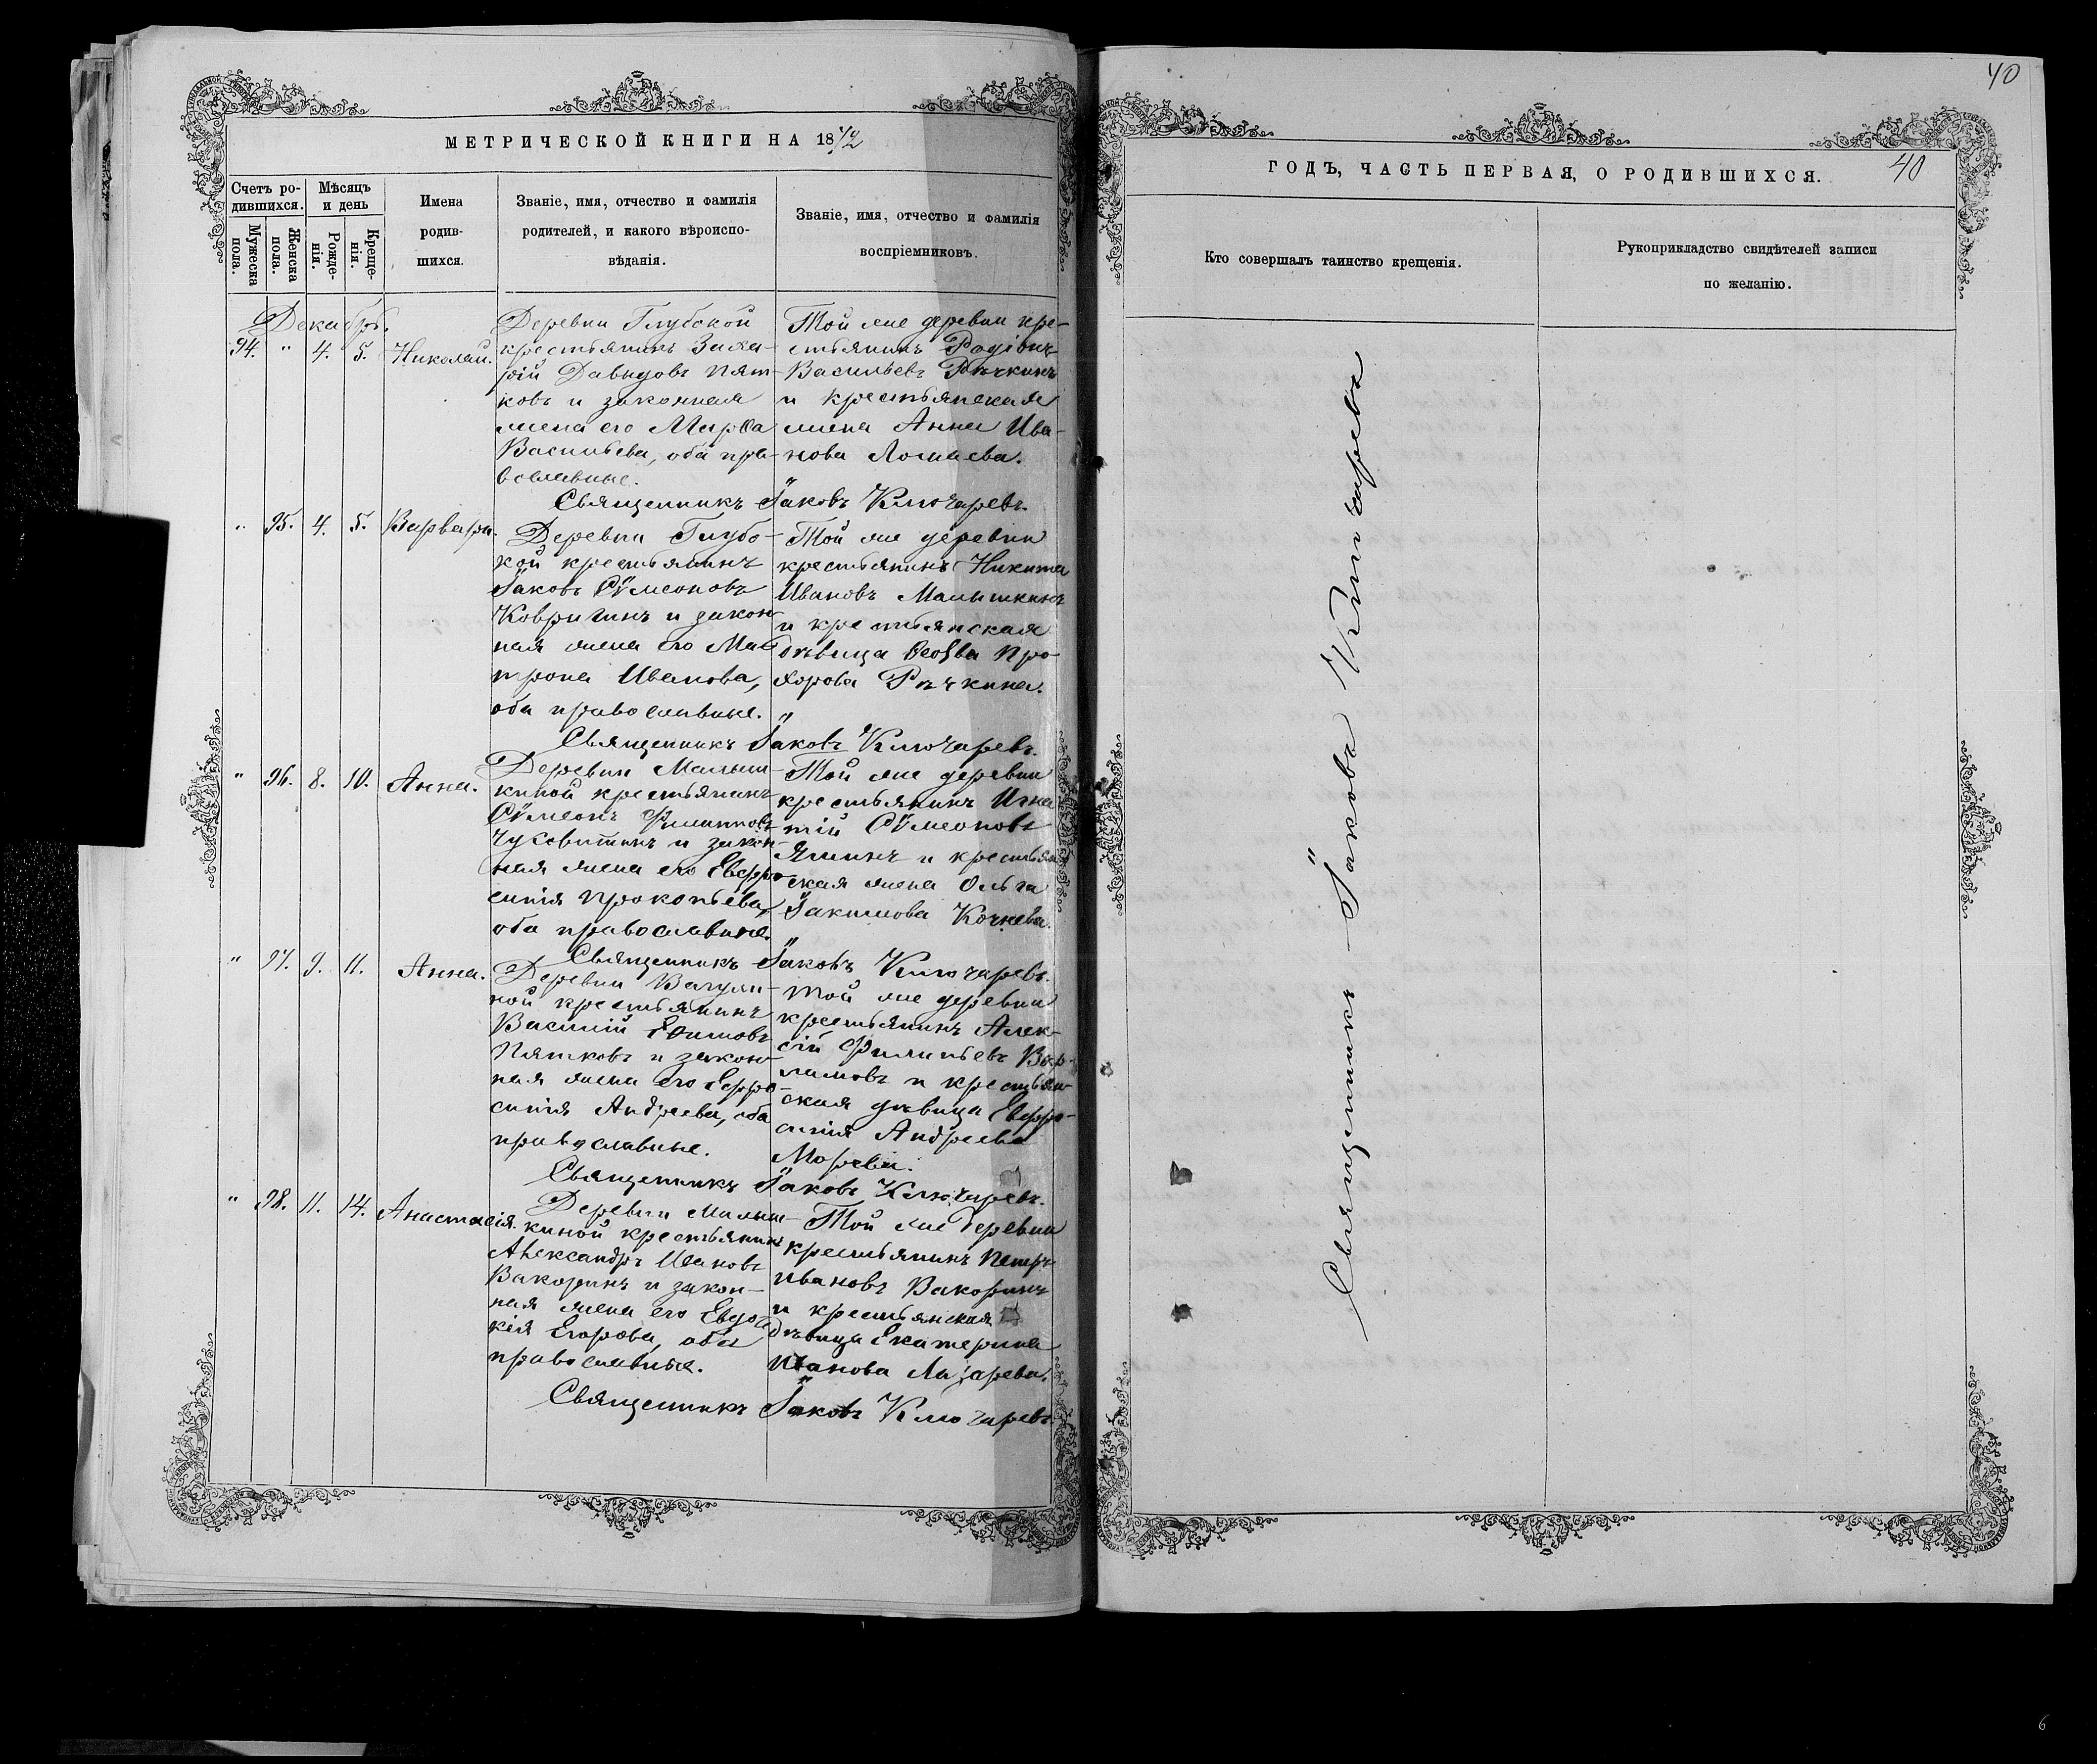 МЕТРИЧЕСКОЙ КНИГИ НА 1872
Счетъ ро-
дившихся.
Мѣсяцъ
и день
Мужеска
пола.
Женска
пола.
Рожде-
нія.
Креще-
нія.
Имена
родив-
шихся.
Званіе, имя, отчество и фамилія
родителей, и какого вѣроиспо-
вѣданія.
Званіе, имя, отчество и фамилія
воспріемниковъ.
Декабрь.
94. " 4. 5. Николай.
Деревни Глубокой
крестьянинъ Заха-
рій Давыдовъ Пят-
ковъ и законная
жена его Марѳа
Васильева, оба пра-
вославные.
Той же деревни кре-
стьянинъ Родіонъ
Васильевъ Рѣчкинъ
и крестьянская
жена Анна Ива-
нова
Священникъ Іаковъ Ключаревъ.
" 95. 4. 5. Варвара.
Деревни Глубо-
кой крестьянинъ
Іаковъ Сѵмеоновъ
Ковригинъ и закон-
ная жена его Ма-
трона Иванова,
оба православные.
Той же деревни
крестьянинъ Никита
Ивановъ Малышкинъ
и крестьянская
дѣвица Ѳеодва Про-
хорова Рѣчкина.
Священникъ Іаковъ Ключаревъ.
" 96. 8. 10. Анна.
Деревни Малыш-
киной крестьянинъ
Сѵмеонъ Филипповъ
Чусовитинъ и закон-
ная жена его Евфро-
синія Прокопьева,
оба православные.
Той же деревни
крестьянинъ Игна-
тій Сѵмеоновъ
Яминъ и крестьян-
ская жена Ольга
Іакимова Кочнева.
Священникъ Іаковъ Ключаревъ.
" 97. 9. 11. Анна.
Деревни
ной крестьянинъ
Василій Еѳимовъ
Пятковъ и закон-
ная жена его Ефро-
синія Андреева, оба
православные.
Той же деревни
крестьянинъ Алек-
сій Филипьевъ Вар-
ламовъ и крестьян-
ская дѣвица Евфро-
синія Андреева
Морева.
Священникъ Іаковъ Ключаревъ.
" 98. 11. 14. Анастасія.
Деревни Малыш-
киной крестьянинъ
Александръ Ивановъ
Вакоринъ и закон-
ная жена его Евдо-
кія Егорова, оба
православные.
Той же деревни
крестьянинъ Петръ
Ивановъ Вакоринъ
и крестьянская
дѣвица Екатерина
Иванова Лазарева.
Священникъ Іаковъ Ключаревъ.
40
ГОДЪ, ЧАСТЬ ПЕРВАЯ, О РОДИВШИХСЯ.
40
Кто совершалъ таинство крещенія.
Рукоприкладство свидѣтелей записи
по желанію.
Священникъ Іаковъ Ключаревъ
6